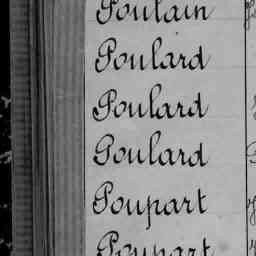 Poulain
Poulard
Poulard
Poulard
Poupart
Poupart